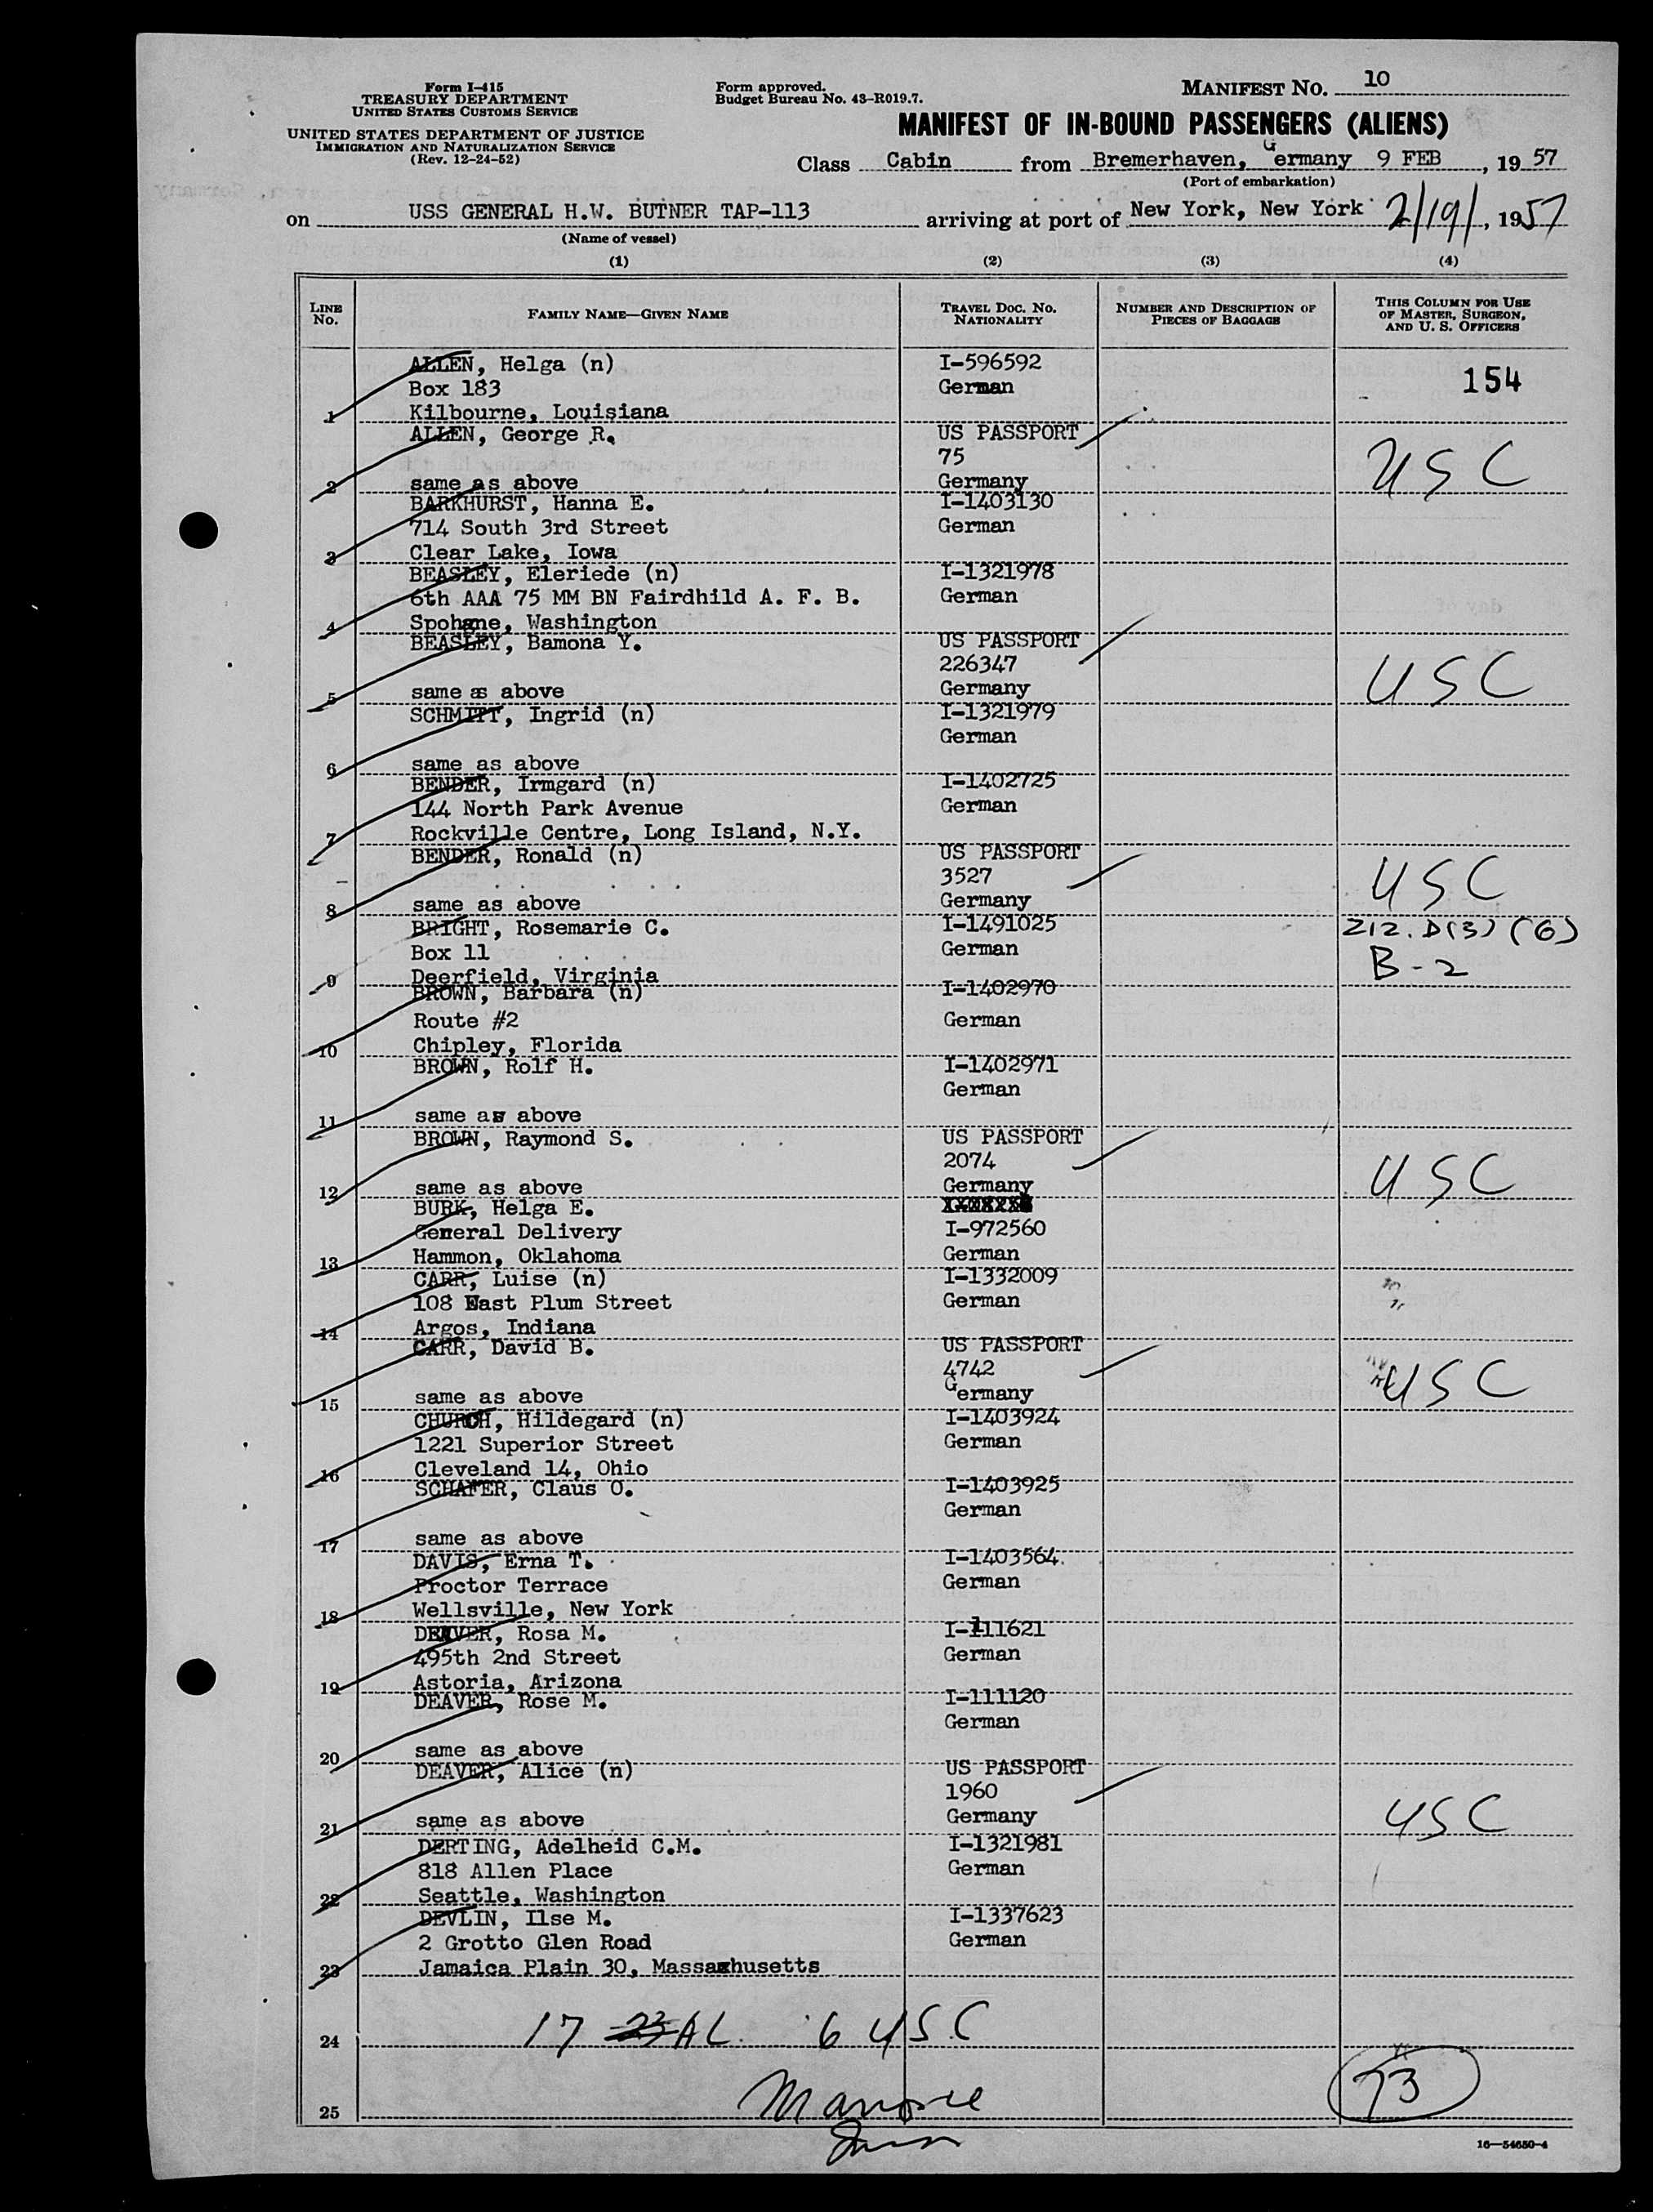 Form I-415
TREASURY DEPARTMENT
UNITED STATES CUSTOMS SERVICE
UNITED STATES DEPARTMENT OF JUSTICE
IMMIGRATION AND NATURALIZATION SERVICE
(Rev. 12-24-52)
Form approved.
Budget Bureau No. 43-R019.7.
MANIFEST NO. 10
MANIFEST OF IN-BOUND PASSENGERS (ALIENS)
Class Cabin from Bremerhaven, Germany 9 FEB, 19 57
(Port of embarkation)
on USS GENERAL H.W. BUTNER TAP-113 arriving at port of New York, New York 2/19/, 1957
(Name of vessel)
(1) (2) (3) (4)
LINE NO. FAMILY NAME—GIVEN NAME TRAVEL DOC. NO. NATIONALITY NUMBER AND DESCRIPTION OF PIECES OF BAGGAGE THIS COLUMN FOR USE OF MASTER, SURGEON, AND U. S. OFFICERS
ALLEN, Helga (n) I-596592
Box 183 German 154
1 Kilbourne, Louisiana
ALLEN, George R. US PASSPORT
75 USC
2 same as above Germany
BARKHURST, Hanna E. I-1403130
714 South 3rd Street German
3 Clear Lake, Iowa
BEASLEY, Eleriede (n) I-1321978
6th AAA 75 MM BN Fairdhild A. F. B. German
4 Spohane, Washington
BEASLEY, Bamona Y. US PASSPORT
226347 USC
5 same as above Germany
SCHMITT, Ingrid (n) I-1321979
German
6 same as above
BENDER, Irmgard (n) I-1402725
144 North Park Avenue German
7 Rockville Centre, Long Island, N.Y.
BENDER, Ronald (n) US PASSPORT
3527 USC
8 same as above Germany
BRIGHT, Rosemarie C. I-1491025 212.D(3) (6)
Box 11 German B-2
9 Deerfield, Virginia
BROWN, Barbara (n) I-1402970
Route #2 German
10 Chipley, Florida
BROWN, Rolf H. I-1402971
German
11 same as above
BROWN, Raymond S. US PASSPORT
2074 USC
12 same as above Germany
BURK, Helga E.
General Delivery I-972560
13 Hammon, Oklahoma German
CARR, Luise (n) I-1332009
108 East Plum Street German
14 Argos, Indiana
CARR, David B. US PASSPORT
4742 USC
15 same as above Germany
CHURCH, Hildegard (n) I-1403924
1221 Superior Street German
16 Cleveland 14, Ohio
SCHAFER, Claus O. I-1403925
German
17 same as above
DAVIS, Erna T. I-1403564
Proctor Terrace German
18 Wellsville, New York
DEAVER, Rosa M. I-111621
495th 2nd Street German
19 Astoria, Arizona
DEAVER, Rose M. I-111120
German
20 same as above
DEAVER, Alice (n) US PASSPORT
1960
21 same as above Germany USC
DERTING, Adelheid C.M. I-1321981
818 Allen Place German
22 Seattle, Washington
DEVLIN, Ilse M. I-1337623
2 Grotto Glen Road German
23 Jamaica Plain 30, Massachusetts
24 17 23 AL 6 USC
25
16—54650-4